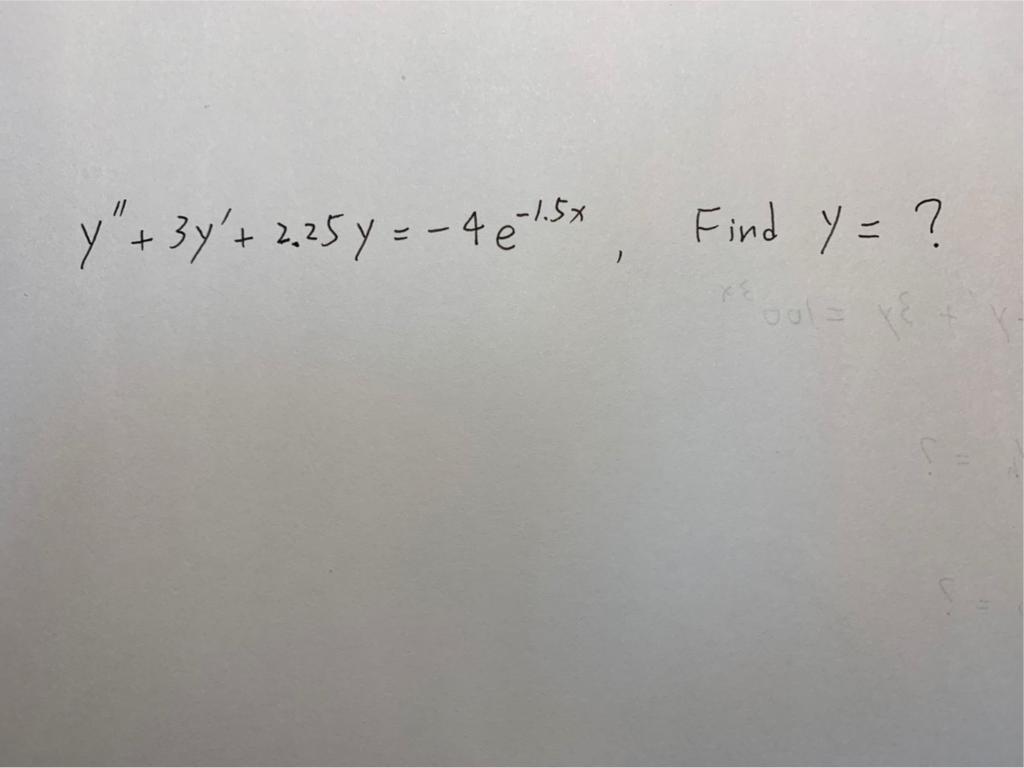 y'' + 3y' + 2.25y = -4e^{-1.5x} , Find y = ?